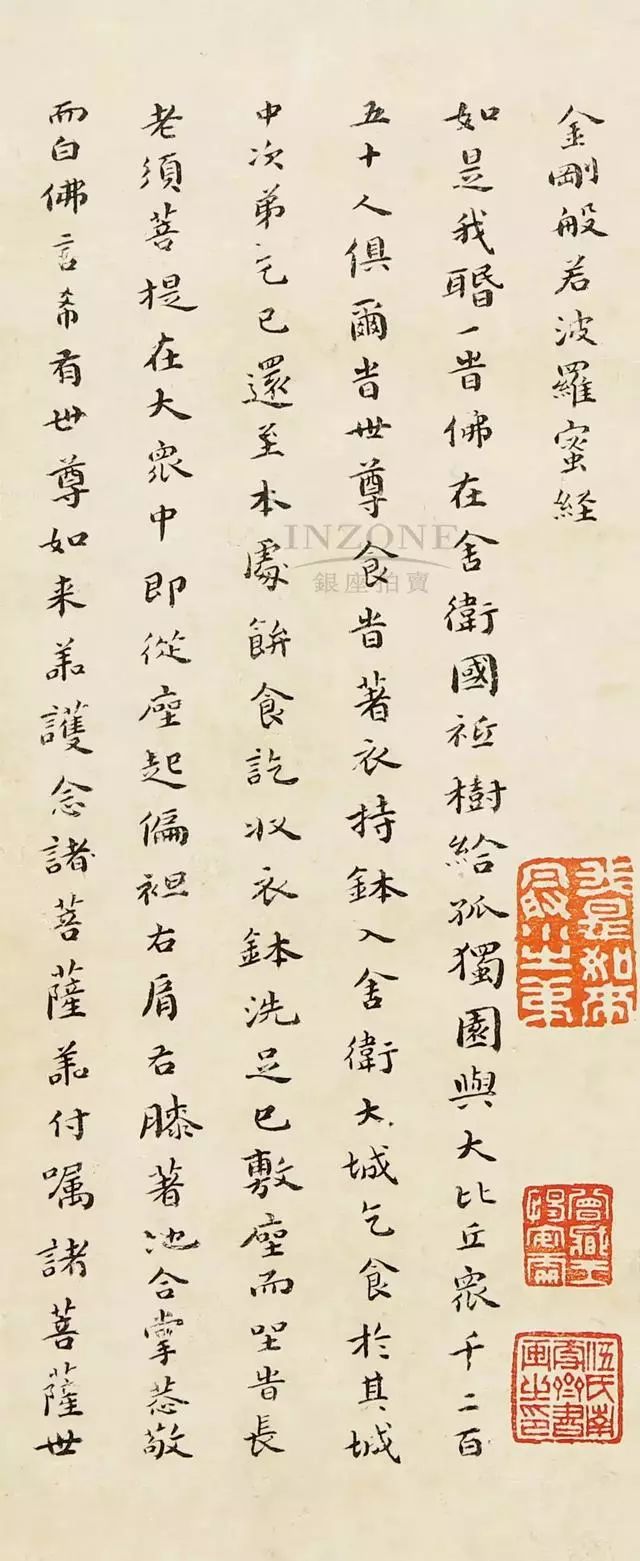 金剛般若波羅蜜経
如是我聞一峕佛在舍衛國祇樹給孤獨園與大比丘衆千二百
五十人俱爾峕世尊食峕著衣持鉢入舍衛大城乞食於其城
中次第乞已還至本處飯食訖收衣鉢洗足已敷座而坐峕長
老須菩提在大衆中即從座起偏袒右肩右膝著地合掌恭敬
而白佛言希有世尊如来善護念諸菩薩善付嘱諸菩薩世
INZONE
銀座拍賣
伍氏南
書
畫之印